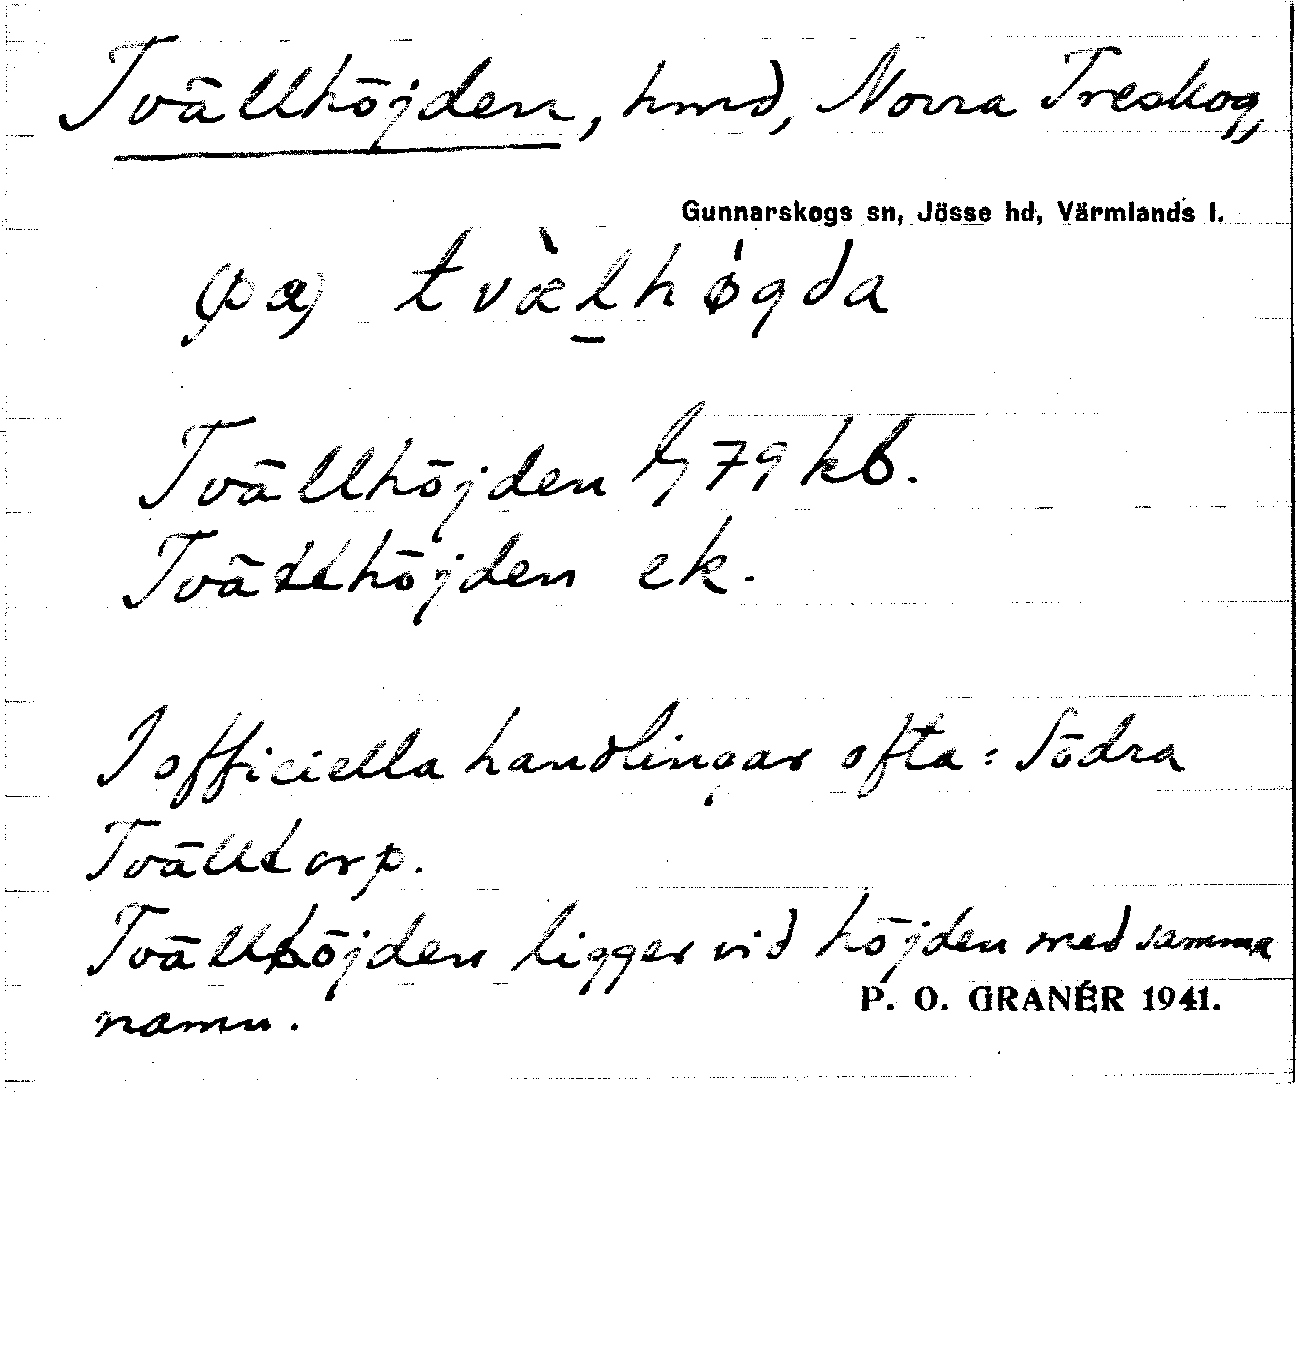 Tvällhöjden, hmd, Norra Treskog,
Gunnarskogs sn, Jösse hd, Värmlands l.
(på) tvæ̀lhǿgda
Tvällhöjden 79 kb.
Tvätthöjden ek.
I officiella handlingar ofta: Södra
Tvälltorp.
Tvällhöjden ligger vid höjden med samma
namn.
P. O. GRANÉR 1941.